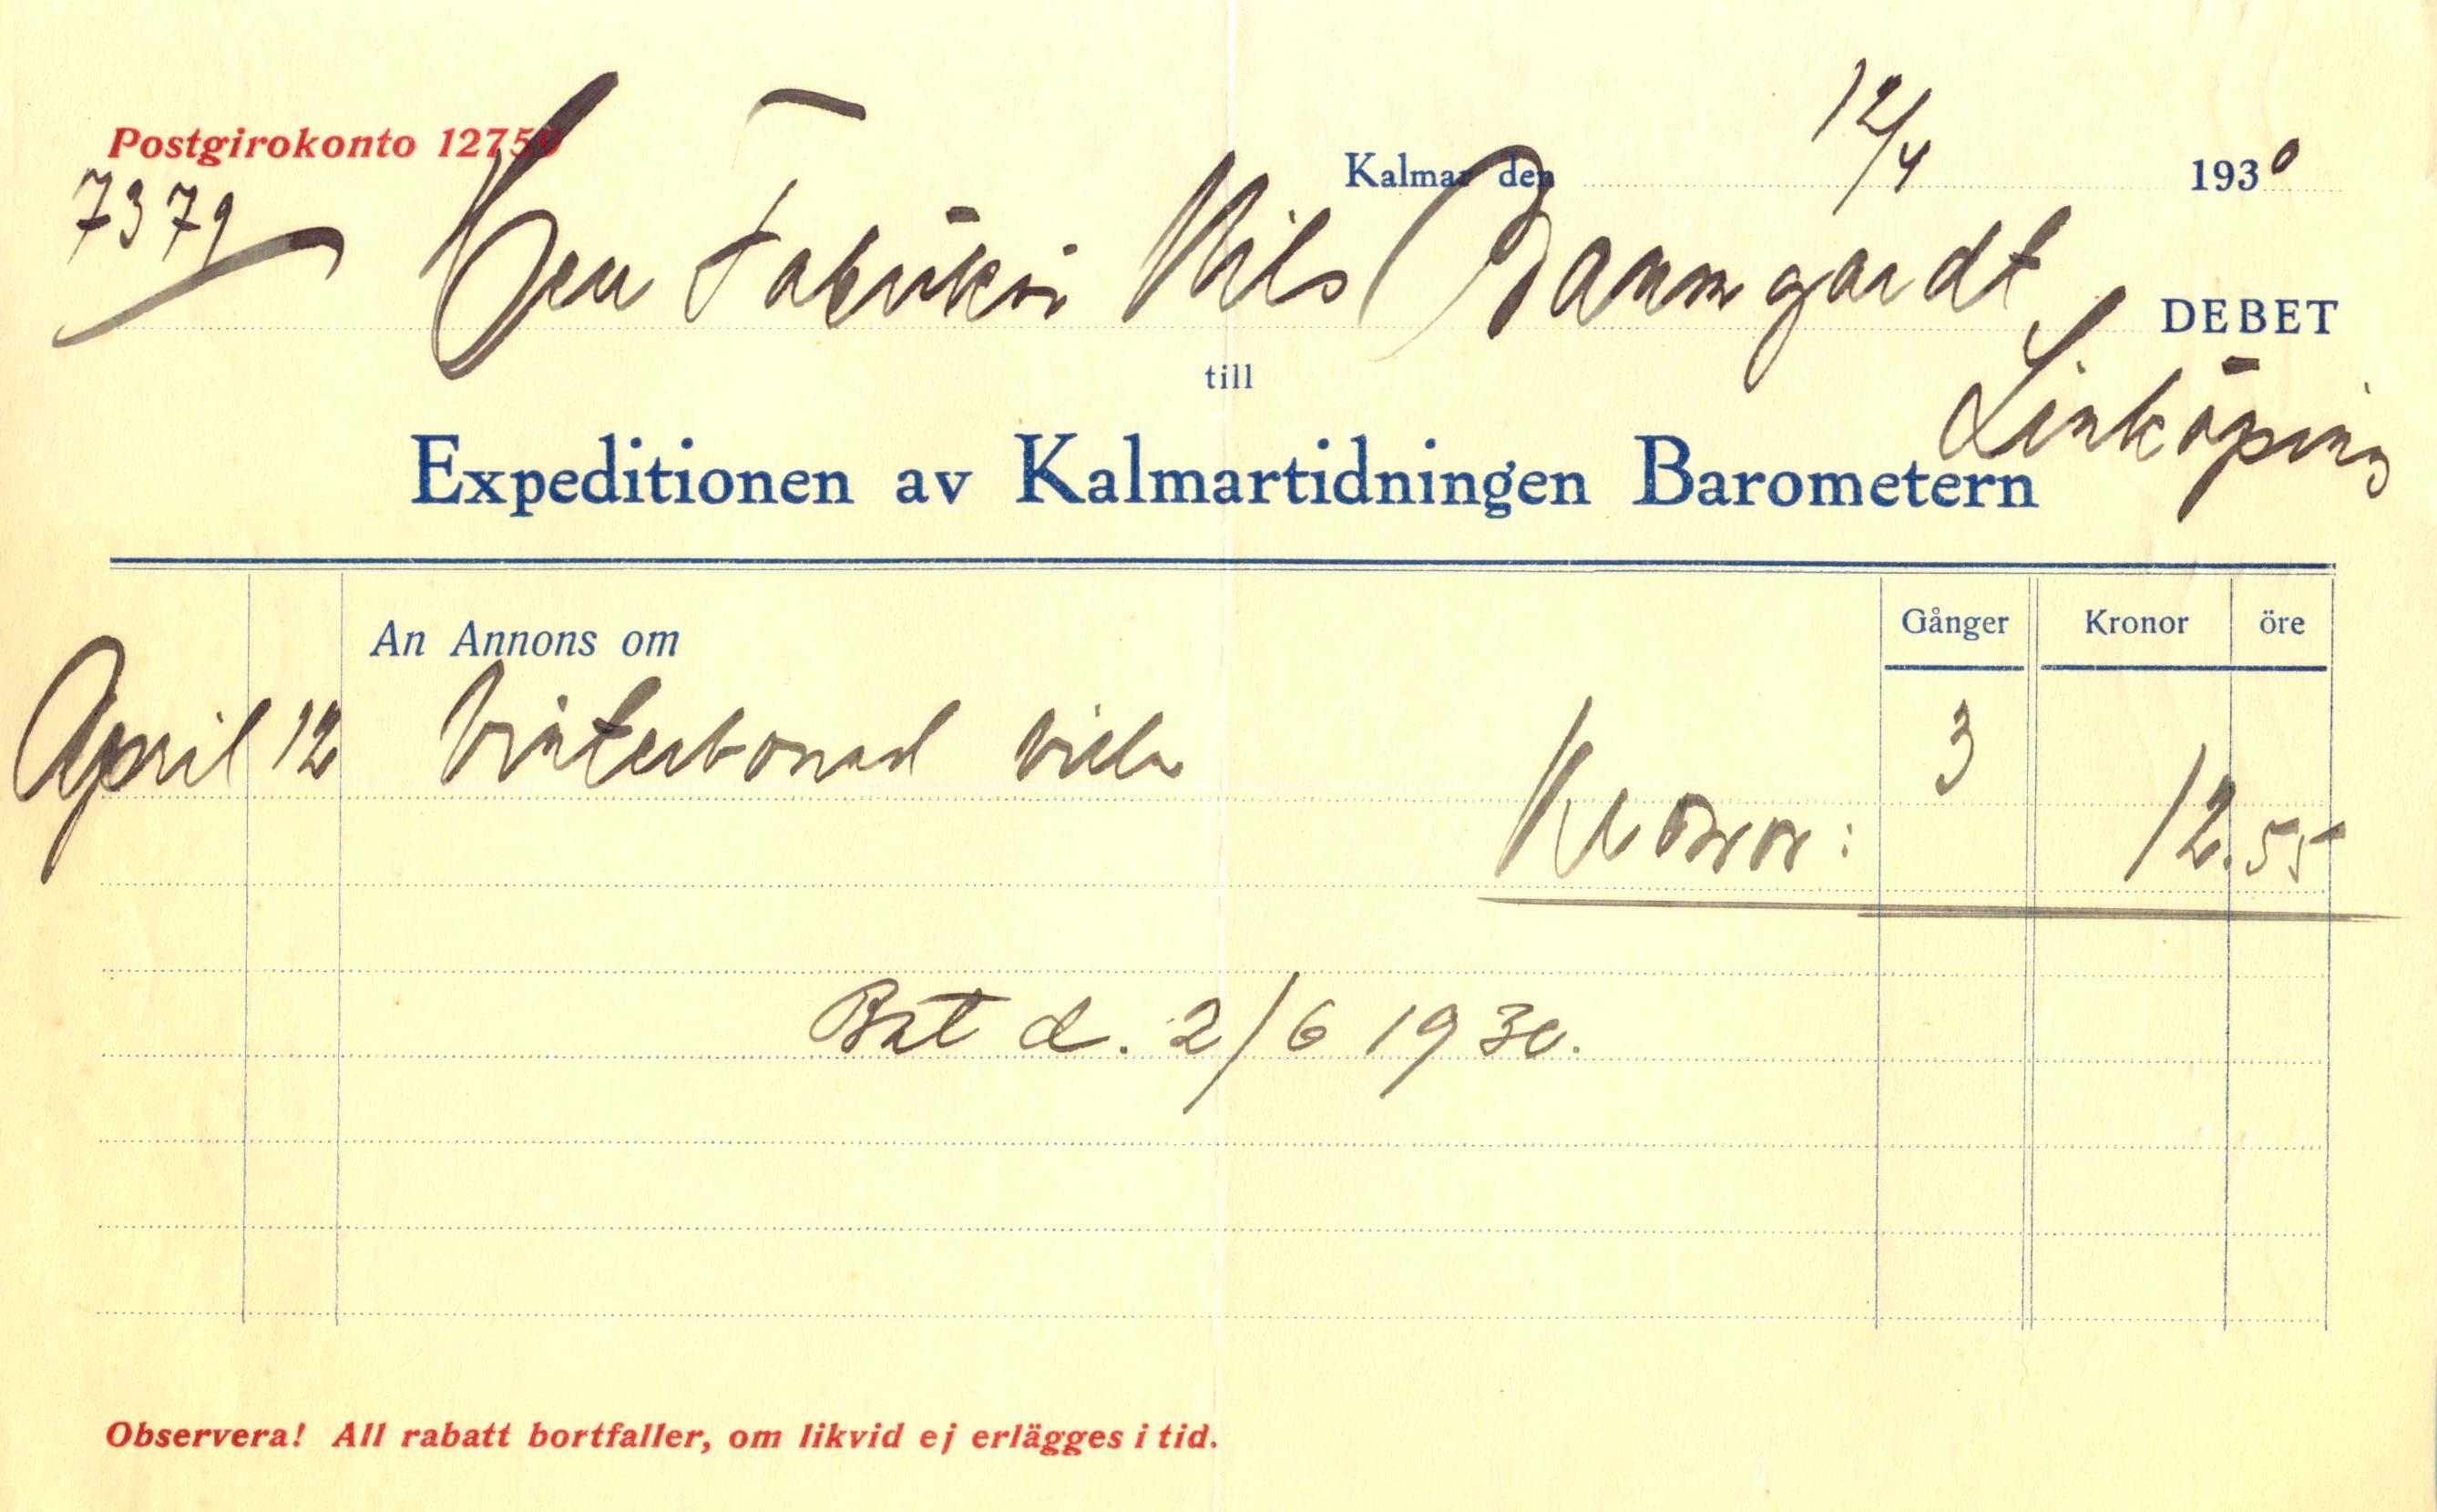 Postgirokonto 12750
7379
Kalmar den 12/4 1930
Herr Fabrikör Nils Dammgardt, DEBET
Linköping
till
Expeditionen av Kalmartidningen Barometern
Gånger Kronor öre
An Annons om
April 12 Vinterbonad villa 3
Kronor: 12.55
Bet d. 2/6 1930.
Observera! All rabatt bortfaller, om likvid ej erlägges i tid.